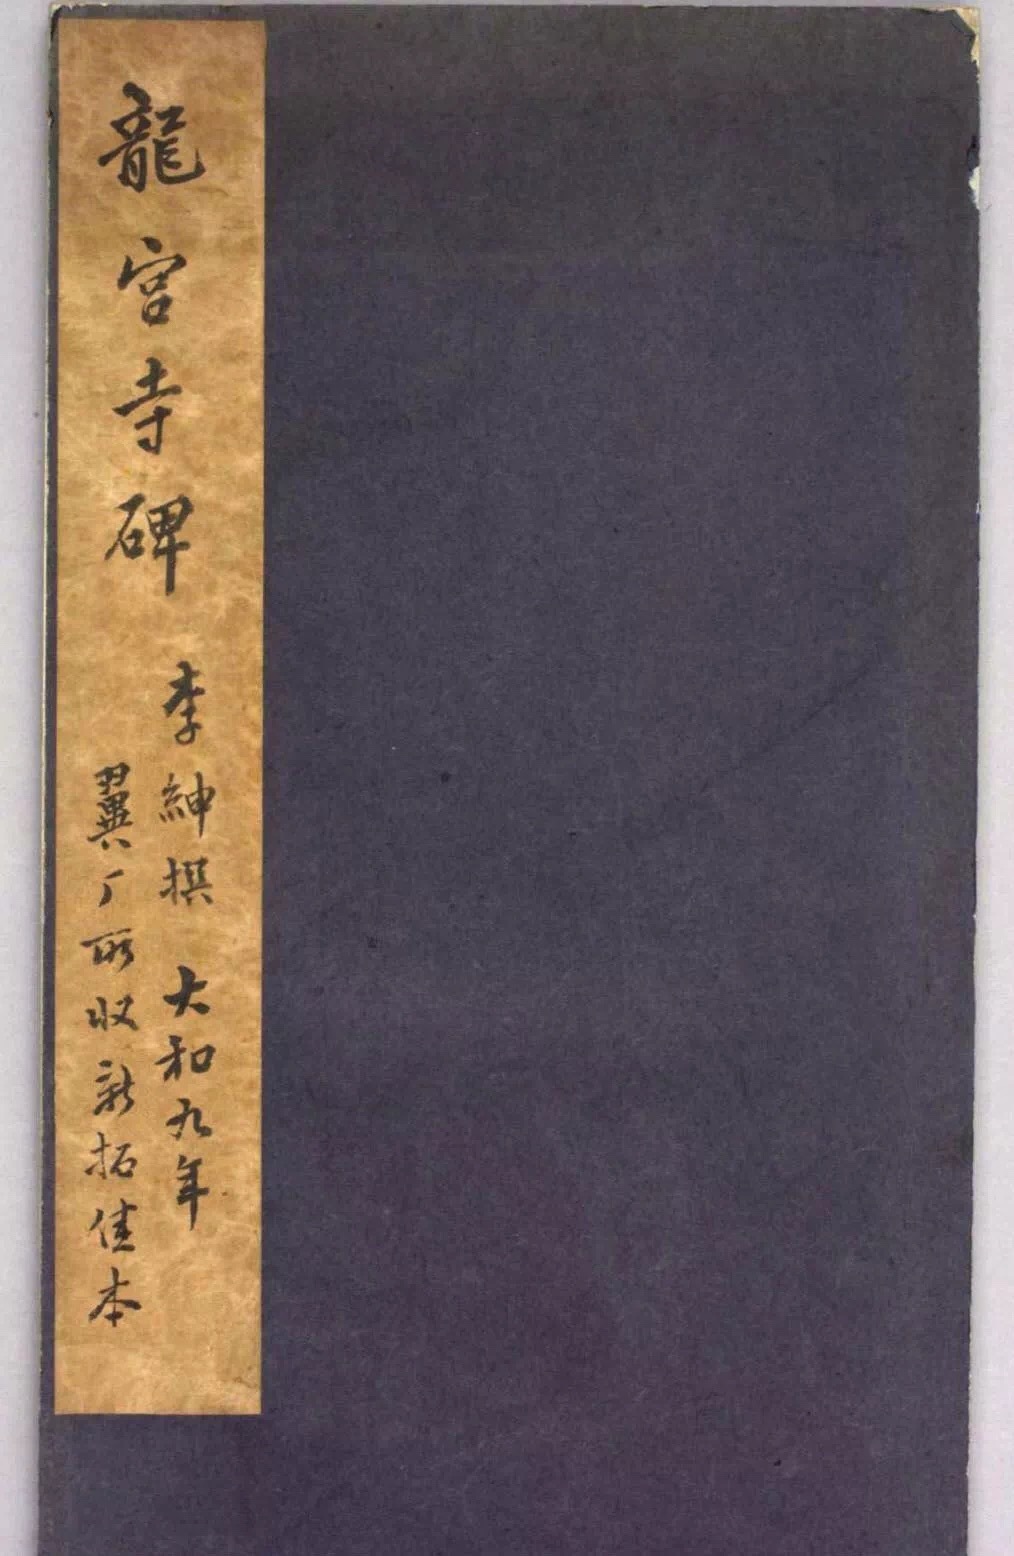 龍宮寺碑
李紳撰 大和九年
翼厂所收新拓佳本